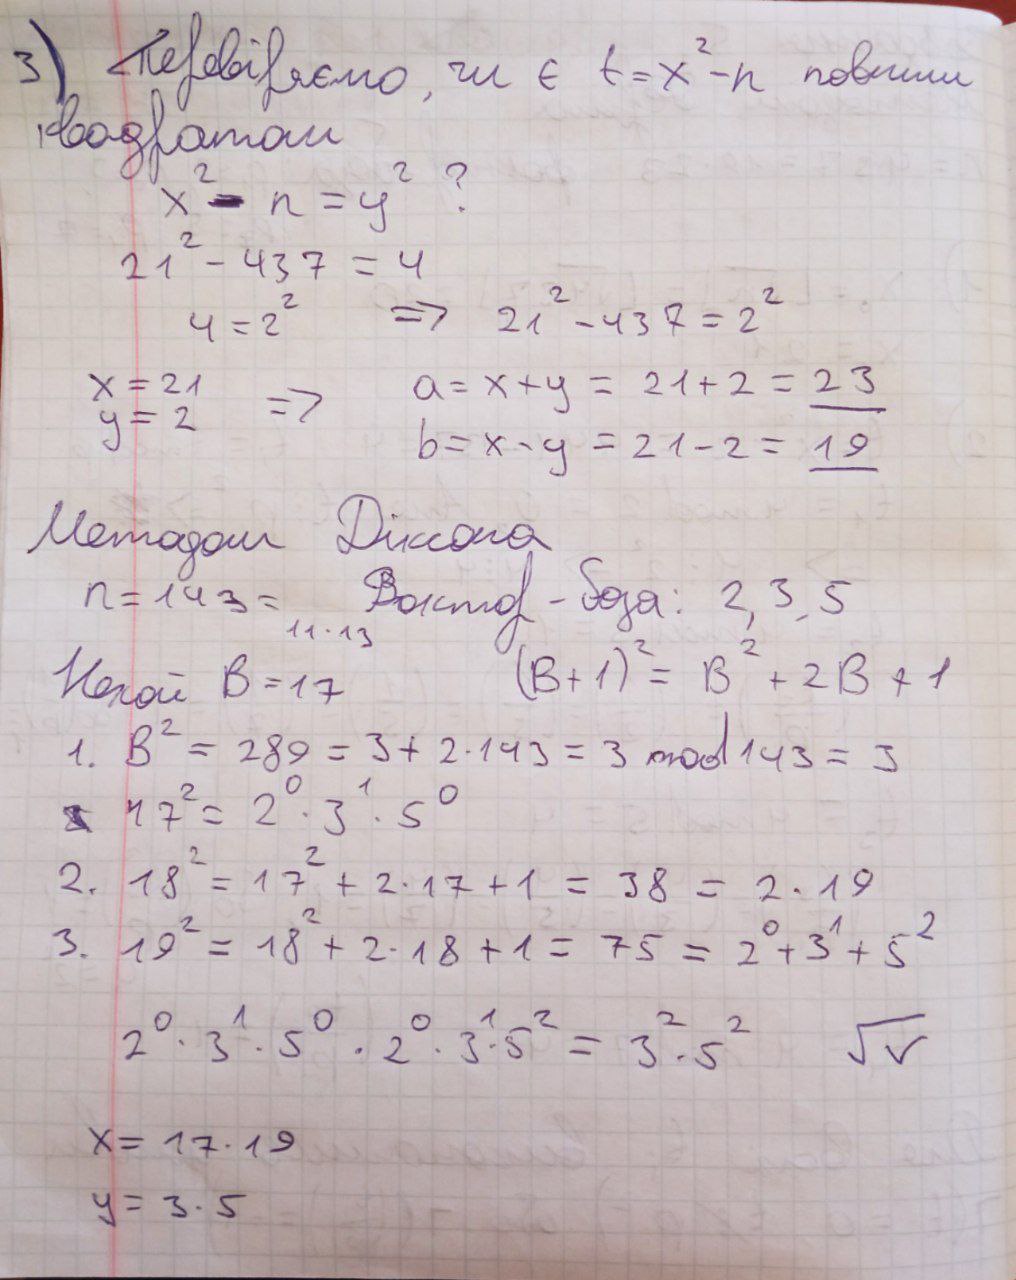 3) Перевіряємо, чи є t = x² - n повним
квадратом
x² - n = y² ?
21² - 437 = 4
4 = 2² => 21² - 437 = 2²
x = 21 => a = x + y = 21 + 2 = 23
y = 2 b = x - y = 21 - 2 = 19
Методом Діксона
n = 143 = 11·13 Фактор-база: 2, 3, 5
Нехай B = 17 (B+1)² = B² + 2B + 1
1. B² = 289 = 3 + 2·143 = 3 mod 143 = 3
17² = 2⁰ · 3¹ · 5⁰
2. 18² = 17² + 2·17 + 1 = 38 = 2·19
3. 19² = 18² + 2·18 + 1 = 75 = 2⁰ + 3¹ + 5²
2⁰ · 3¹ · 5⁰ · 2⁰ · 3¹ · 5² = 3² · 5² √v
x = 17·19
y = 3·5